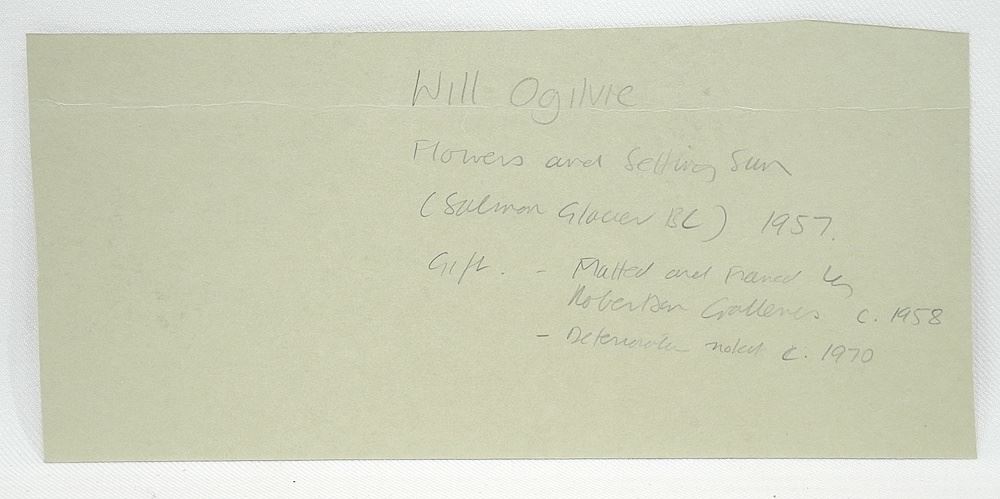 Will Ogilvie
Flowers and Setting Sun
(Salmon Glacier BC) 1957.
Gift. - Matted and Framed by
Robertson Galleries c. 1958
- Deterioration noted c. 1970